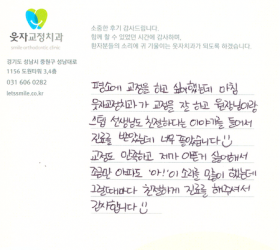 소중한 후기 감사드립니다.
함께 할 수 있었던 시간에 감사하며,
환자분들의 소리에 귀 기울이는 웃자교정치과가 되도록 하겠습니다.
웃자교정치과
smile orthodontic clinic
경기도 성남시 중원구 성남대로
1156 도원타워 3,4층
031 606 0282
letssmile.co.kr
평소에 교정을 하고 싶어했는데 마침
웃자교정치과가 교정을 잘 하고 원장님이랑
스텝 선생님도 친절하다는 이야기를 들어서
진료를 받았는데 너무 좋았습니다
교정도 만족하고 제가 아픈거 싫어해서
조금만 아파도 '아!' 이 소리를 많이 했는데
그럴때마다 친절하게 진료를 해주셔서
감사합니다